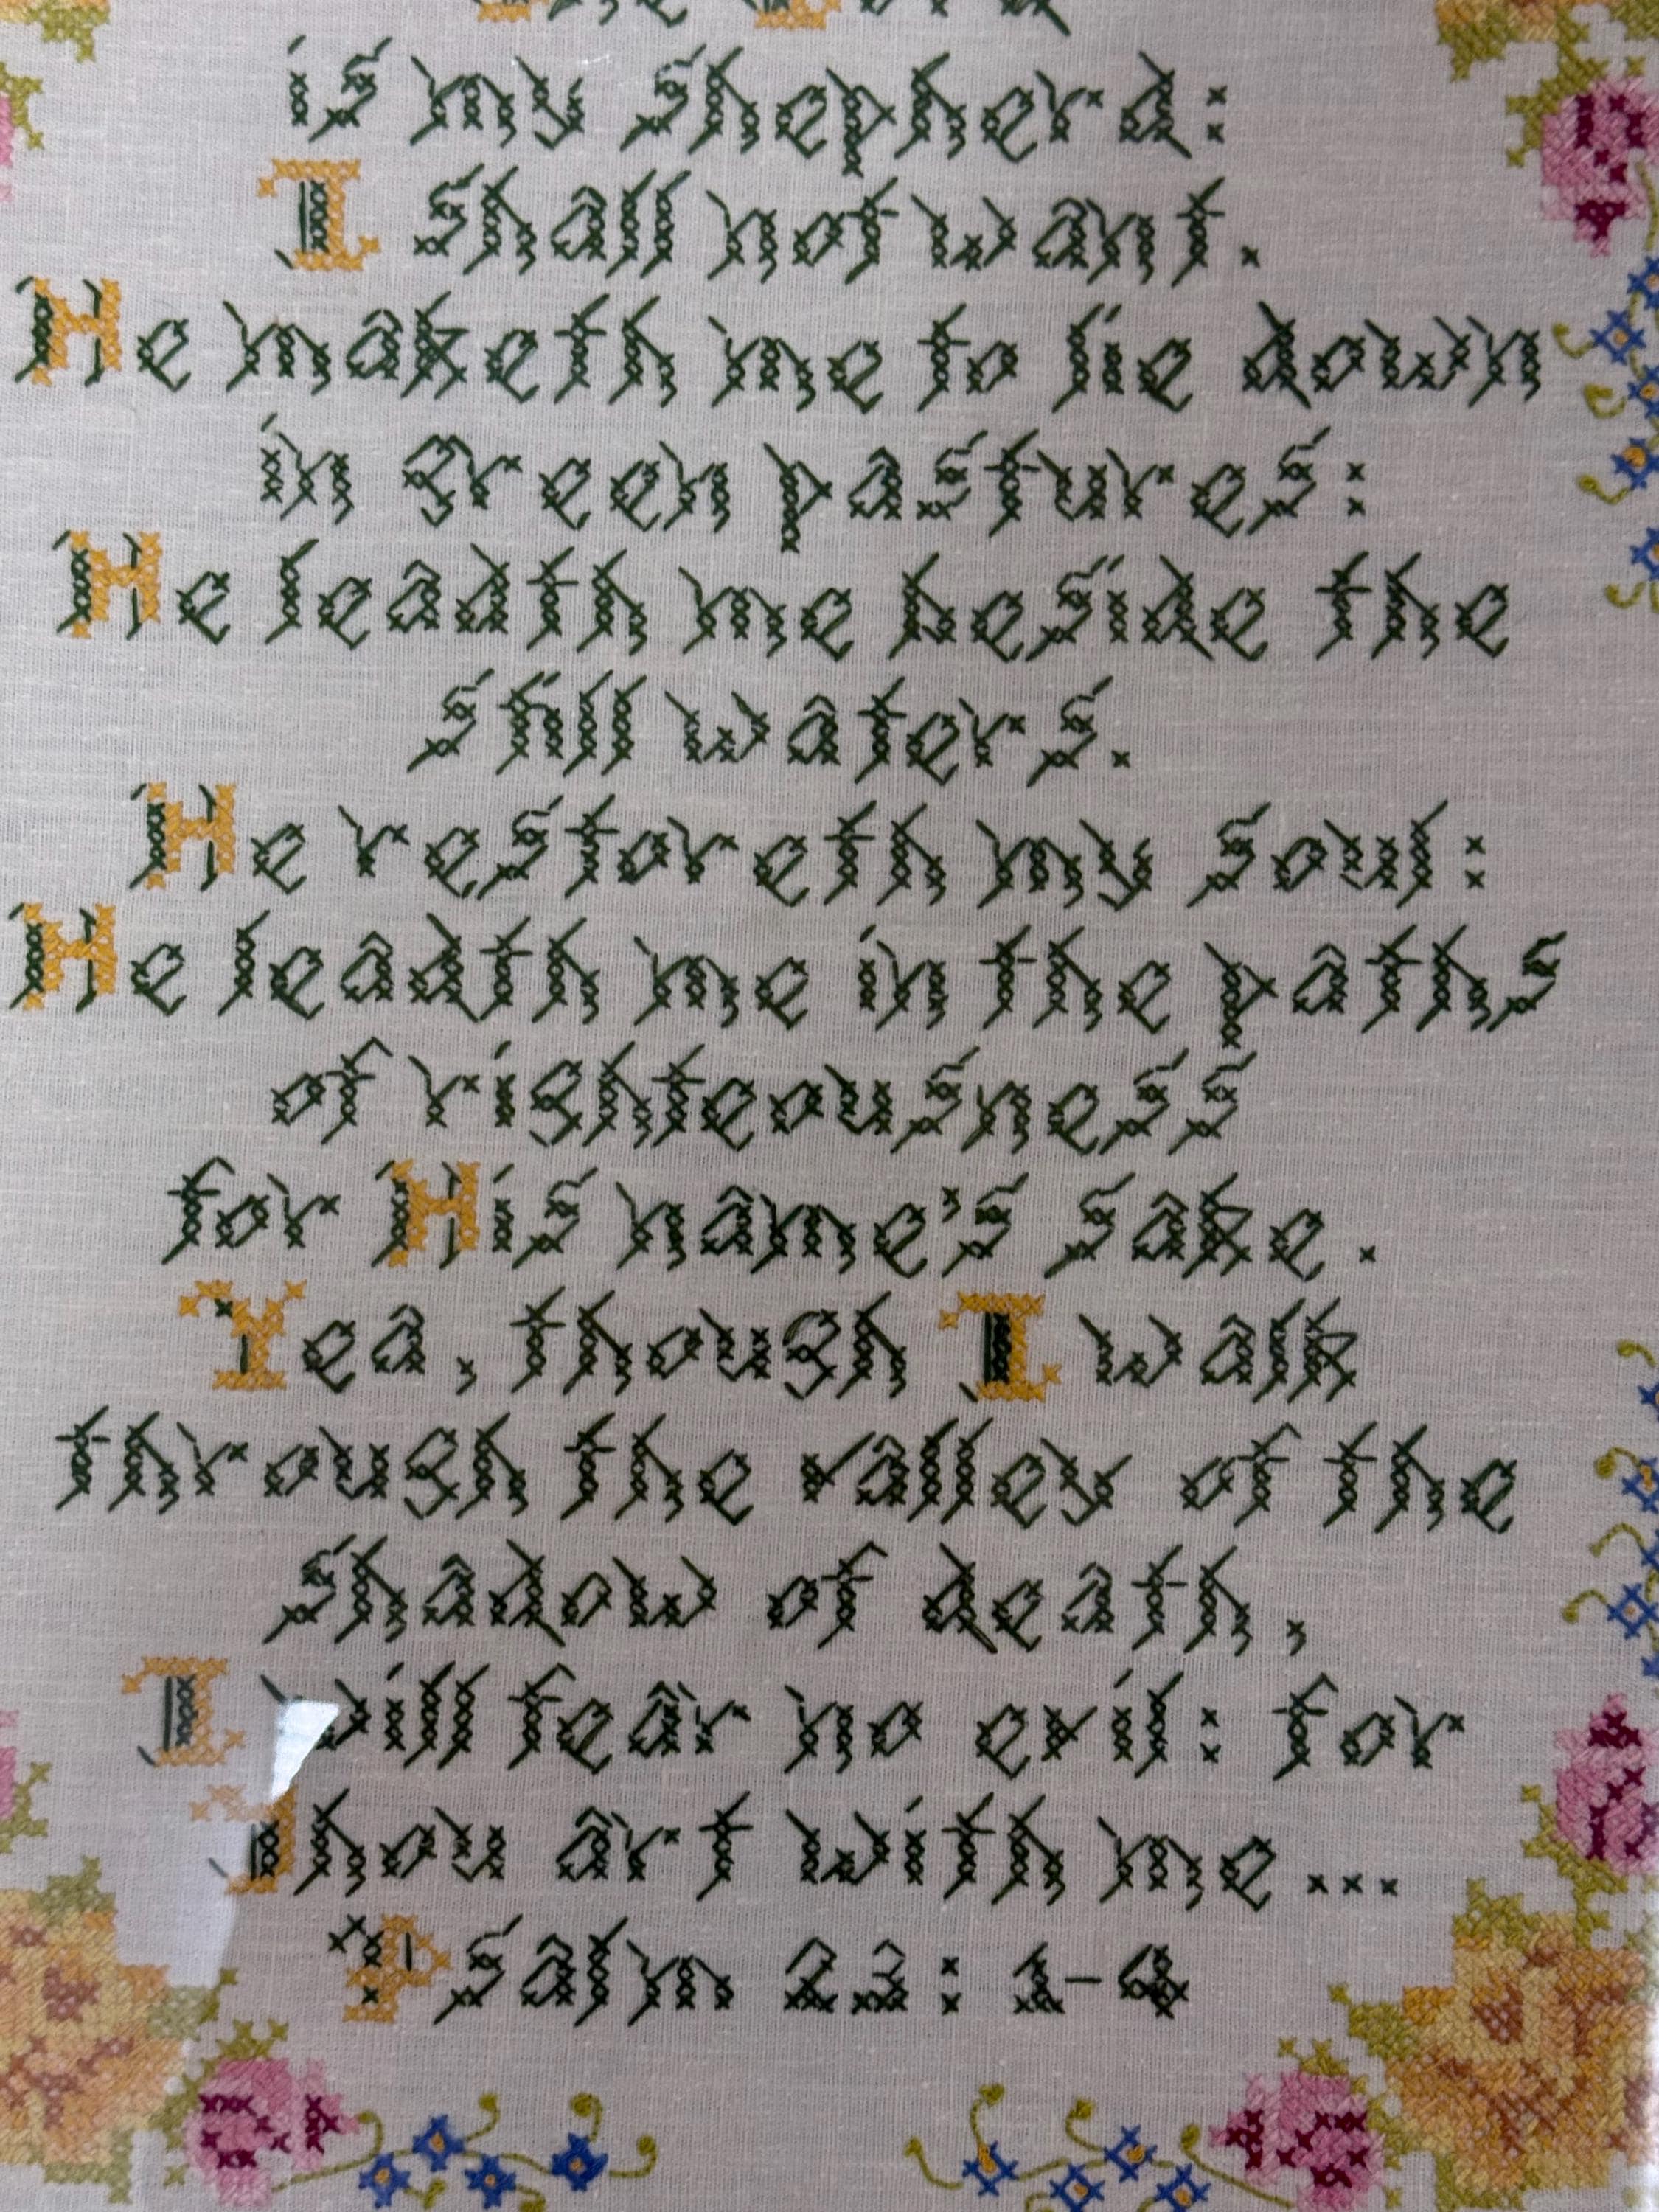 is my shepherd:
I shall not want.
He maketh me to lie down
in green pastures:
He leadth me beside the
still waters.
He restoreth my soul:
He leadth me in the paths
of righteousness
for His name's sake.
Yea, though I walk
through the valley of the
shadow of death,
I will fear no evil: for
Thou art with me...
Psalm 23:1-4